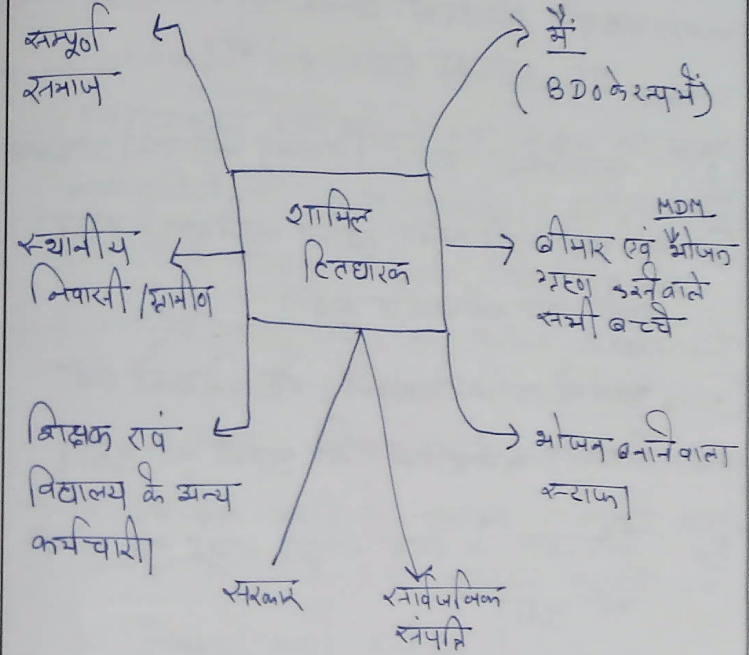 सम्पूर्ण
समाज
मैं
(BDO के रूप में)
शामिल
हितधारक
स्थानीय
निवासी /ग्रामीण
MDM
बीमार एवं भोजन
ग्रहण करने वाले
सभी बच्चे
शिक्षक एवं
विद्यालय के अन्य
कर्मचारी।
भोजन बनाने वाला
स्टाफ।
सरकार
सार्वजनिक
संपत्ति